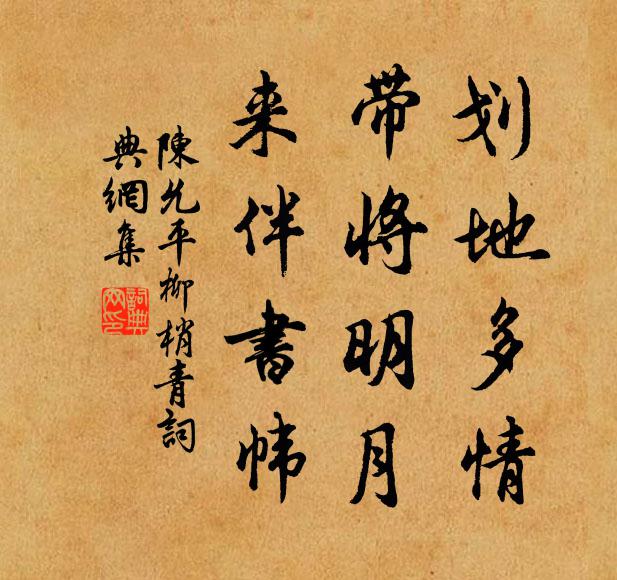 划地多情
带将明月
来伴書帏
陳允平柳梢青詞
典網集
詞典網印